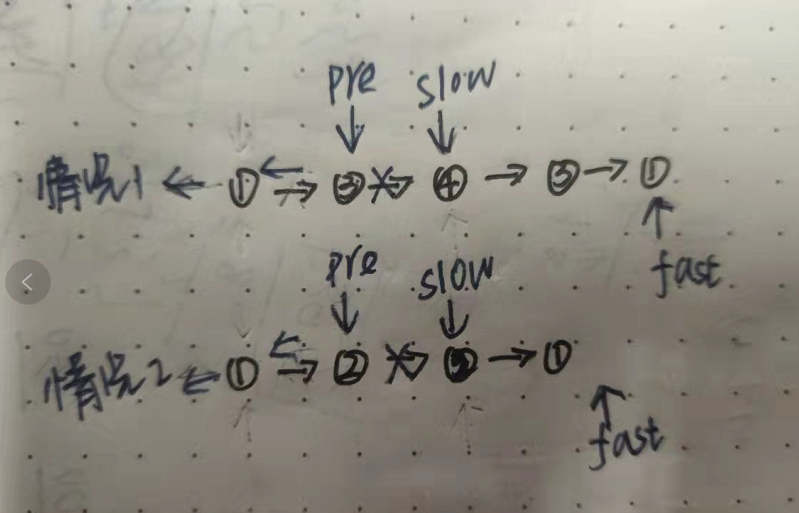 pre slow
情况1 ← ① ← → ③ ✕→ ④ → ③ → ①
↑
fast
pre slow
情况2 ← ① ← → ② ✕→ → ①
↑
fast